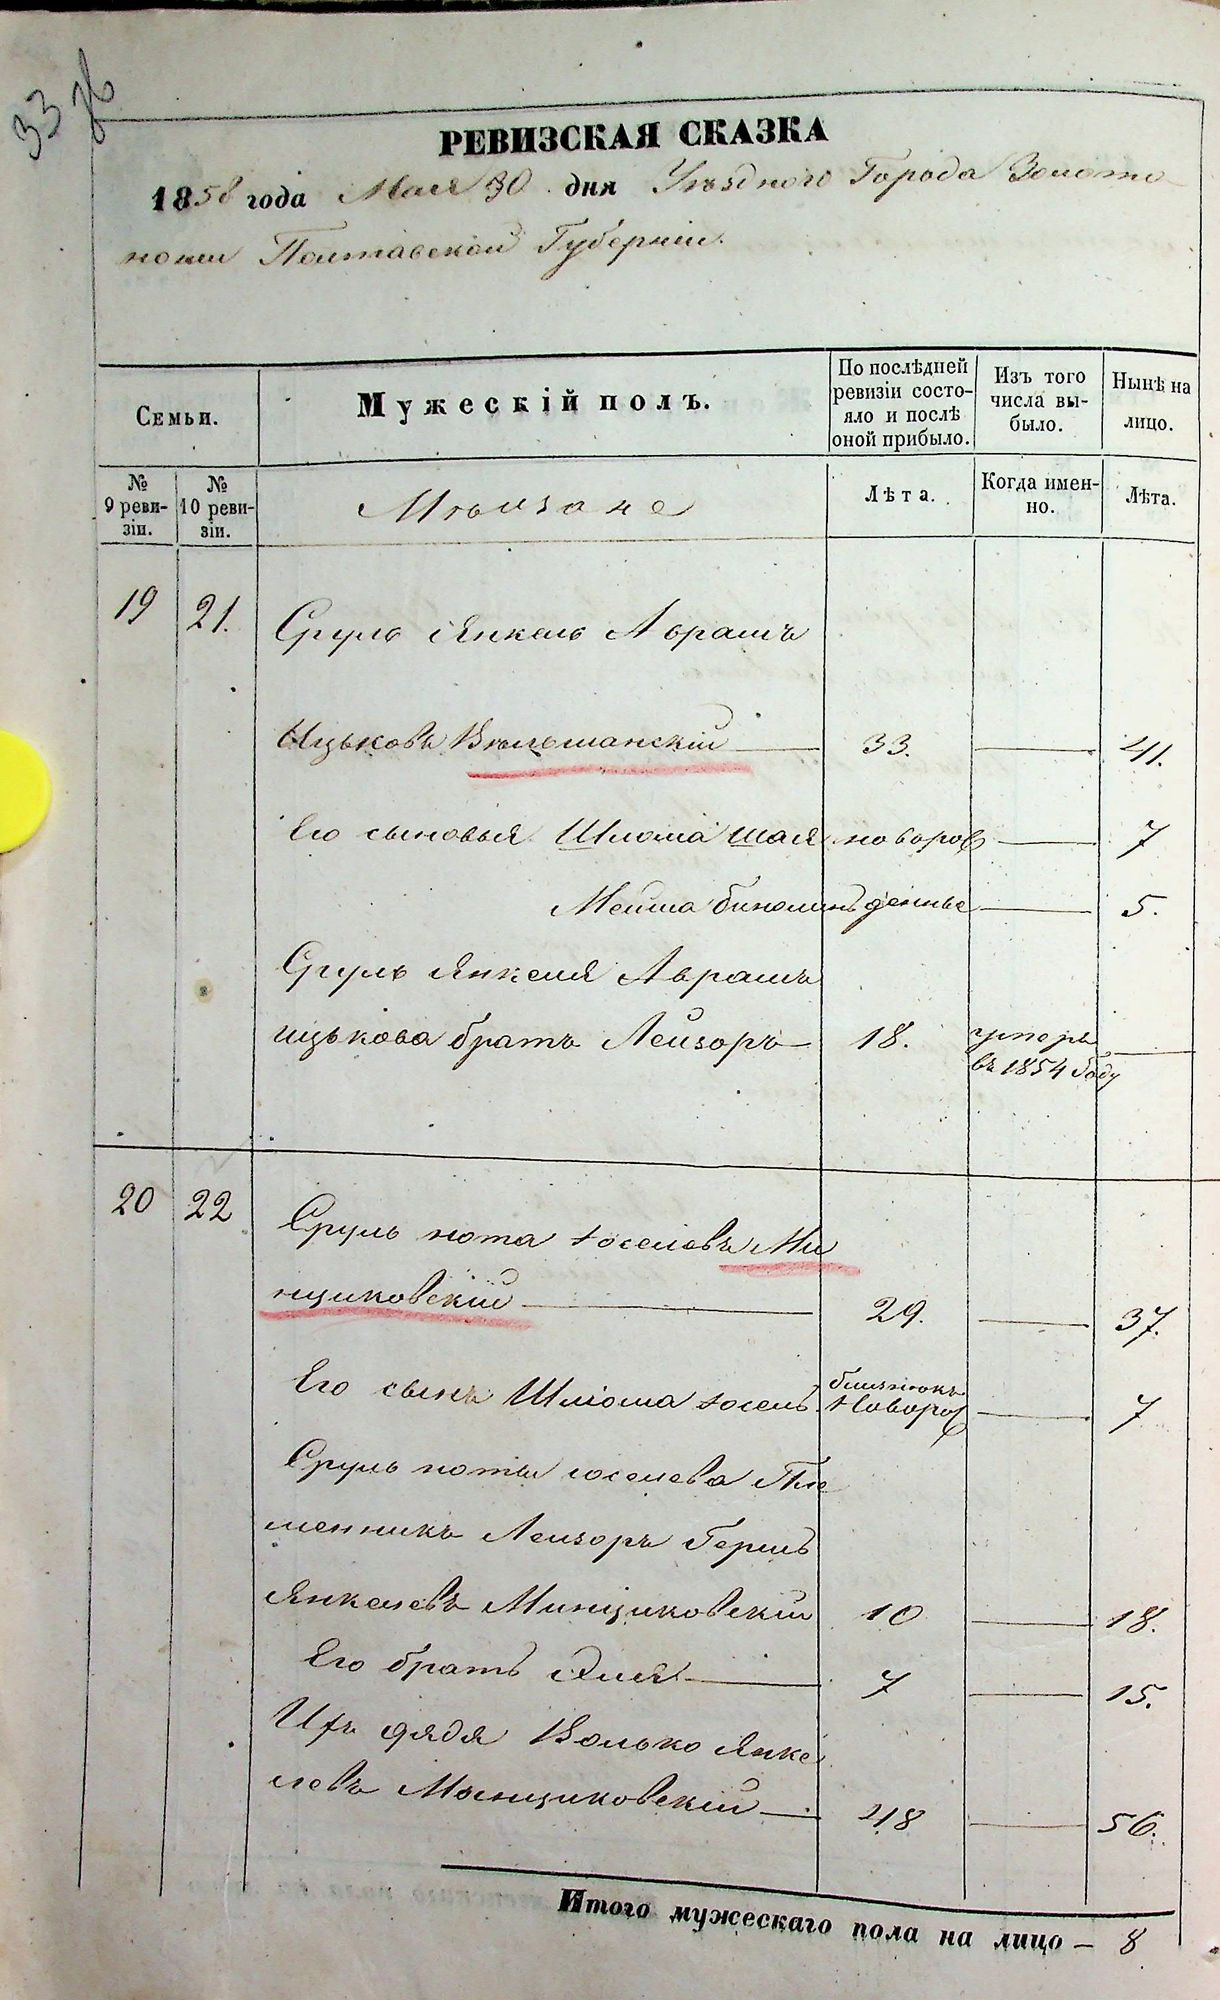 33 зв
РЕВИЗСКАЯ СКАЗКА
1858 года Мая 30 дня Уѣзднаго Города Золото-
ноши Полтавской Губерніи.
Семьи.
Мужескій полъ.
По послѣдней ревизіи состо-
яло и послѣ оной прибыло.
Изъ того числа вы-
было.
Нынѣ на лицо.
№ 9 реви-
зіи.
№ 10 реви-
зіи.
Мѣщане
Лѣта.
Когда имен-
но.
Лѣта.
19 21. Сруль Янкель Аврамъ
Ицьковъ Вильшанскій 33. 41.
Его сыновья Шлома Шая новорож 7
Мейша Биноминъ денные 5.
Сруль Янкеля Аврамъ
ицькова братъ Лейзоръ 18. умеръ
въ 1854 году
20 22 Сруль Нота Іоселевъ Ми
нциковскій 29. 37.
Его сынъ Шлiома Іосель Новорож 7
Сруль Ноты Іоселева Пле
менникъ Лейзоръ Гершъ
Янкелевъ Минциковскій 10 18.
Его братъ Эля 7 15.
Ихъ дядя Волько Янке
левъ Минциковскій 48 56.
Итого мужескаго пола на лицо — 8